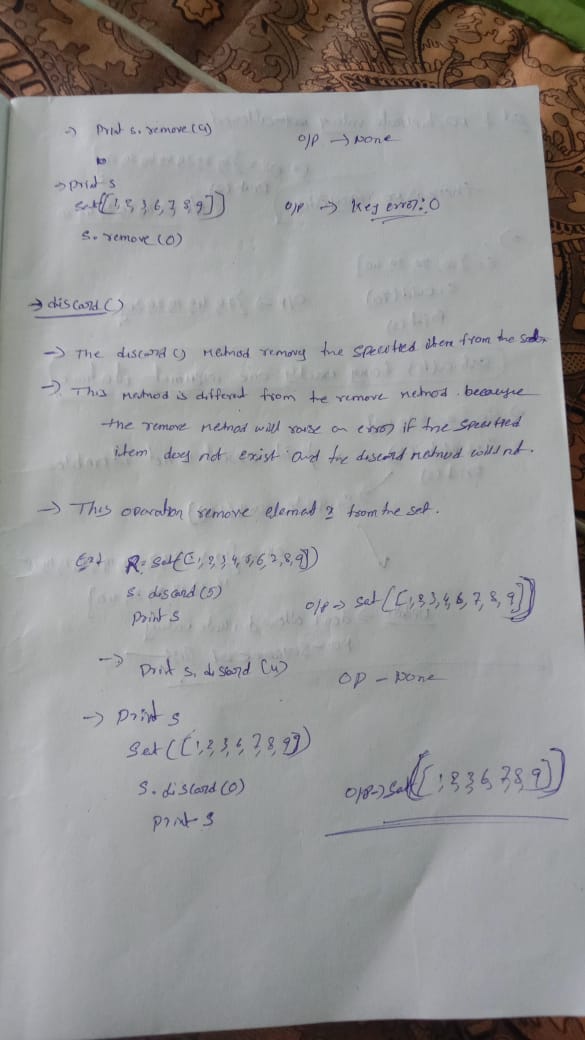 → Print s. remove (4) O/P → None
→ Print s
set([1, 2, 3, 6, 7, 8, 9]) O/P → Key error: 0
s. remove (0)
→ discard ()
→ The discard () method removes the specified item from the
→ This method is different from the remove method. because
the remove method will raise an error if the specified
item does not exist and the discard method will not.
→ This operation remove element from the set.
R = set([1, 2, 3, 4, 5, 6, 7, 8, 9])
s. discard (5)
Print s O/P → set([1, 2, 3, 4, 6, 7, 8, 9])
→ Print s. discard (4) OP - None
→ Print s
set(([1, 2, 3, 6, 7, 8, 9])
s. discard (0) O/P → set([1, 2, 3, 6, 7, 8, 9])
Print s